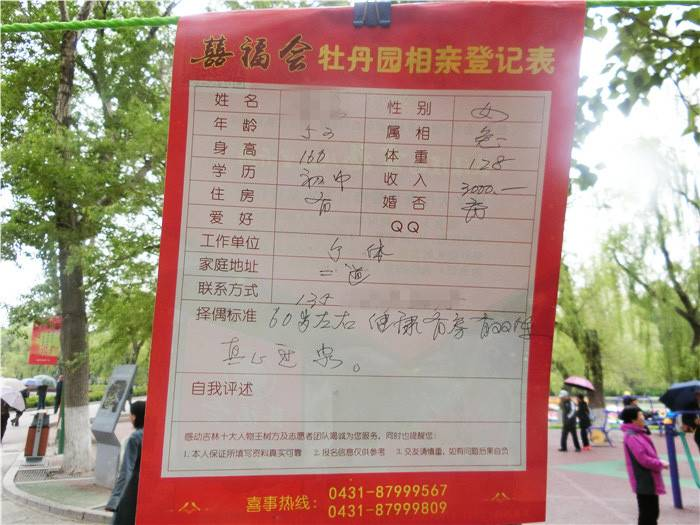 囍福会 牡丹园相亲登记表
姓名 性别 女
年龄 53 属相 兔
身高 166 体重 128
学历 初中 收入 3000.—
住房 有 婚否
爱好 QQ
工作单位 个体
家庭地址 二道
联系方式 134
择偶标准 60岁左右 健康 有房
真心
自我评述
感动吉林十大人物王树方及志愿者团队竭诚为您服务，同时也提醒您：
1. 本人保证所填写资料真实可靠 2. 报名信息仅供参考 3. 交友请慎重，如有问题后果自负
喜事热线：0431-87999567
0431-87999809